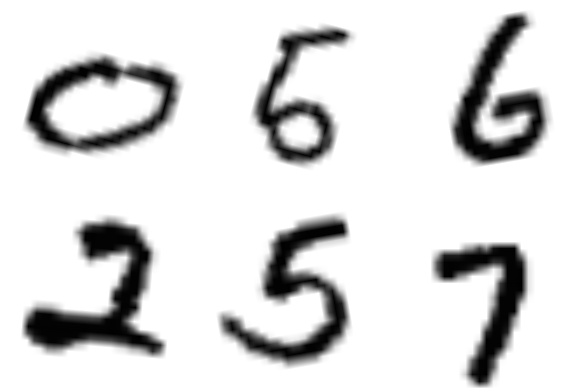 0 5 6
2 5 7